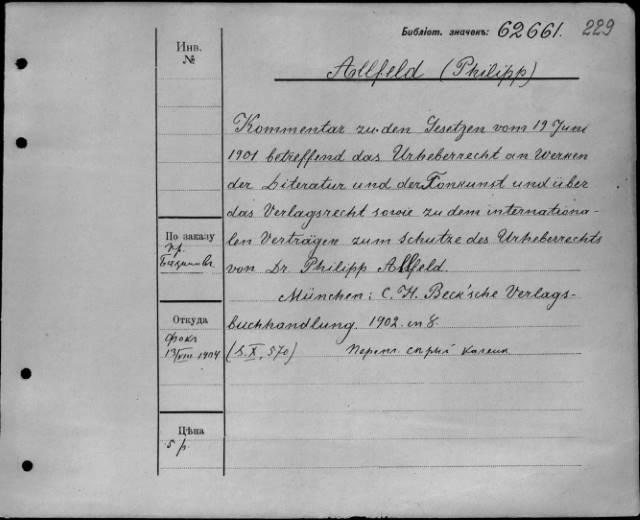 Библіот. значекъ: 62661. 229
Инв.
№
Allfeld (Philipp)
Kommentar zu den Gesetzen vom 19 Juni
1901 betreffend das Urheberrecht an Werken
der Literatur und der Tonkunst und über
das Verlagsrecht sowie zu dem internationa-
len Verträgen zum Schutze des Urheberrechts
von Dr Philipp Allfeld.
München: C. H. Beck'sche Verlags-
buchhandlung. 1902. in 8.
(S. X, 570) сѣрый
По заказу
пр.
Откуда
Фокъ
13/VIII 1904
Цѣна
5 р.